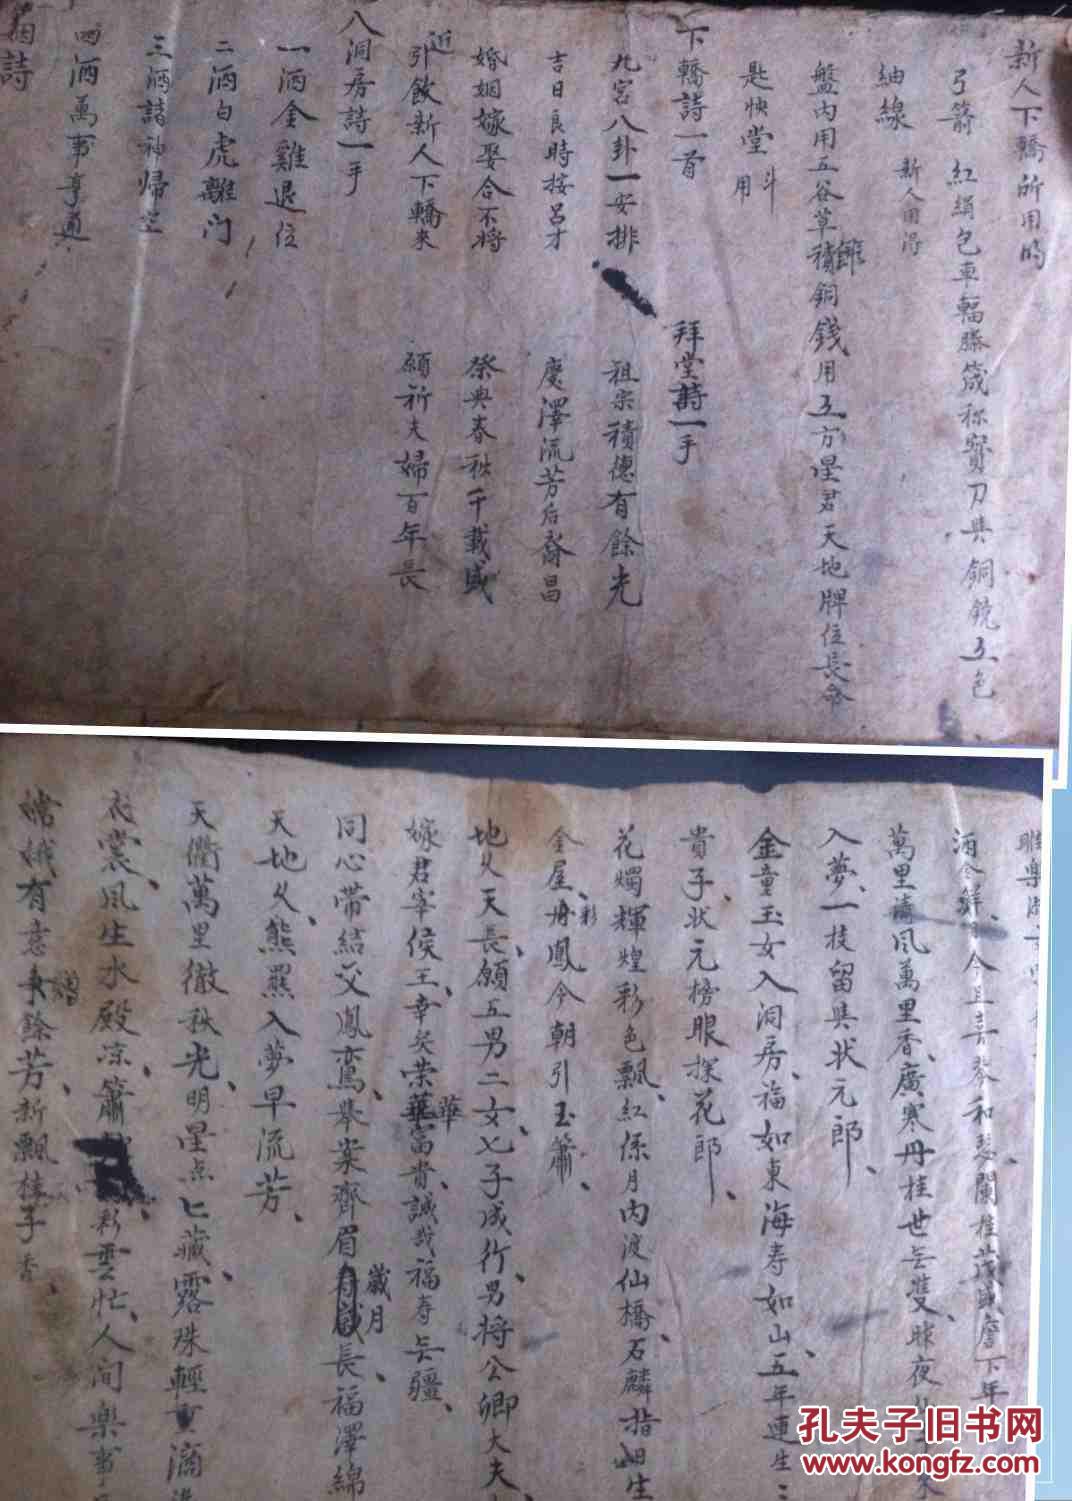 新人下轎所用的
弓箭 紅絹包車輻滕箴称寳刀與銅鏡五色
紬線 新人用得
盤內用五谷草積銅錢用五方星君天地牌位長命
匙快堂斗用
下轎詩一首 拜堂詩一手
九宮八卦一安排 祖宗積德有餘光
吉日良時按呂才 慶澤流芳后裔昌
婚姻嫁娶合不將 祭典春秋千載盛
近引飲新人下轎來 願祈夫婦百年長
八洞房詩一手
一酒金雞退位
二酒白虎離门
三酒諸神歸空
四酒萬事亨通
詩
酒 今且喜琴和瑟蘭桂茂盛 下年
萬里清风萬里香廣寒丹桂世无雙昨夜
入夢一技留與状元郎
金童玉女入洞房福如東海寿如山五年連生
貴子状元榜眼探花郎
花燭輝煌彩色飄紅係月內渡仙橋石麟指日生
金屋彩鳳今朝引玉簫
地久天長願五男二女七子成行男將公卿大夫
嫁君宰侯王幸矣荣華富贵誠哉福寿无疆
同心带結交鳳鸾举案齊眉歲月長福澤綿
天地久熊羆入夢早流芳
天衢萬里徹秋光明星点匕藏露珠輕 滴
衣裳风生水殿凉簫 彩雲忙人间樂事
嫦娥有意 餘芳新飄桂子香
孔夫子旧书网
www.kongfz.com